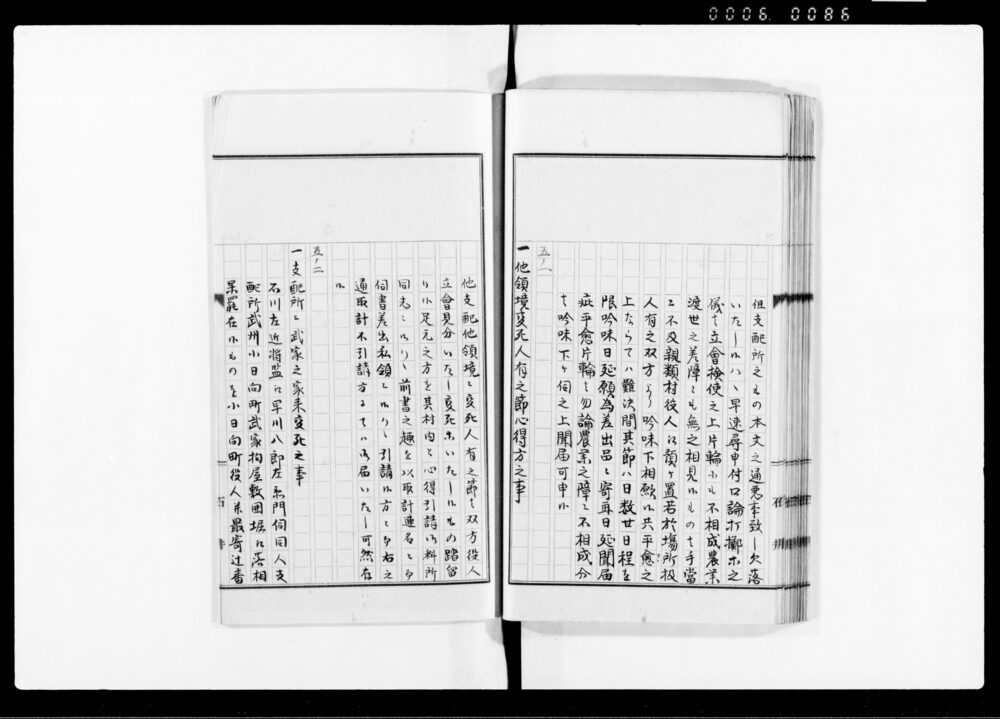 0006. 0086
但支配所之もの本文之通悪事致し欠落
いたし候ハヽ早速尋申付口論打擲ホ之
儀者立會検使之上片輪ニも不相成農業
渡世之差障ニも無之相見候もの者手當
ニ不及親類村役人江預ケ置若於場所扱
人有之双方ゟ吟味下相願候共平愈之
上ならてハ難決間其節ハ日数廿日程を
限吟味日延願為差出品ニ寄再日延聞届
疵平愈片輪ニ勿論農業之障ニ不相成分
者吟味下ケ伺之上聞届可申候
五ノ一
一他領境変死人有之節心得方之事
他支配他領境ニ変死人有之節者双方役人
立會見分いたし変死ホいたし候もの踏留
り候足元之方を其村内と心得引請御料所
同士ニ候ハヽ前書之趣を以取計連名ニ而
伺書差出私領ニ候ハヽ引請候方ニ而右之
通取計不引請方ニ而者ハ御届いたし可然存
候
五ノ二
一支配所ニ武家之家来変死之事
石川左近将監江早川八郎左衛門伺同人支
配所武州小日向町武家拘屋敷囲堀江落相
果罷在候ものを小日向町役人并最寄辻番